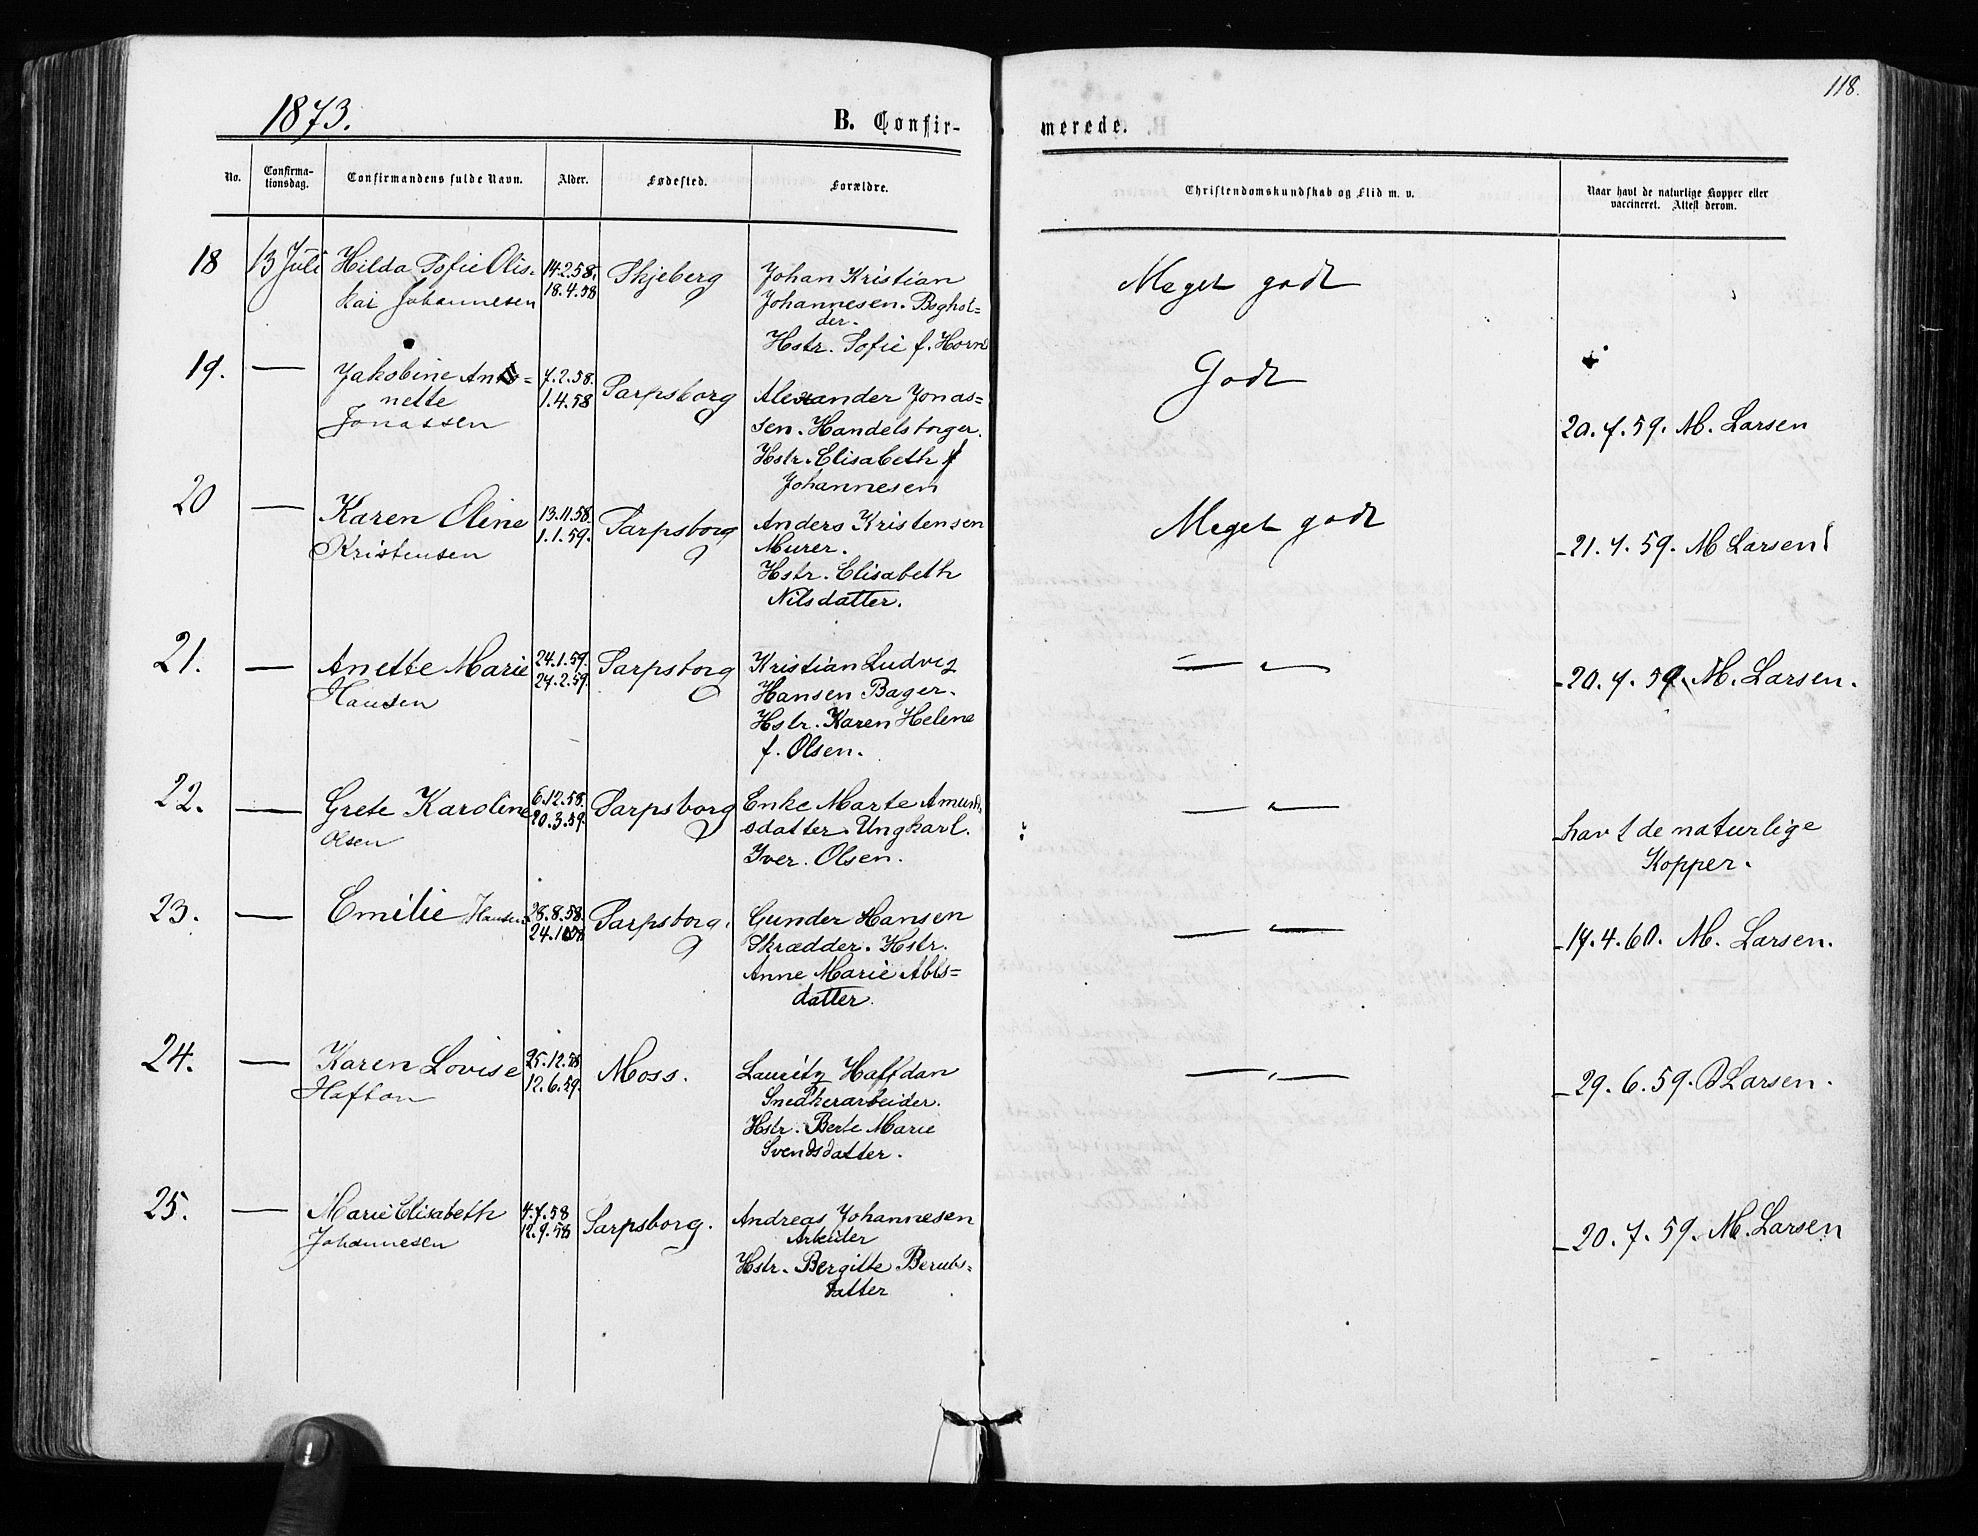 118.
1873.
B. Confir-
merede.
No.
Confirma-
tionsdag.
Confirmandens fulde Navn.
Alder.
Fødested.
Forældre.
Christendomskundskab og Flid m. v.
Naar havt de naturlige Kopper eller
vaccineret. Attest derom.
18
13 Juli
Hilda Sofie Olis-
kai Johannesen
14.2.58.
18.4.58
Skjeberg
Johan Kristian
Johannesen. Boghol=
der.
Hstr. Sofie f. Horn
Meget godt
19.
—
Jakobine An =
nette
Jonassen
7.2.58.
1.4.58
Sarpsborg
Alexander Jonas=
sen. Handelsborger.
Hstr. Elisabeth f
Johannesen
Godt
20.7.59. M. Larsen
20
—
Karen Oline
Kristensen
13.11.58.
1.1.59.
Sarpsborg
Anders Kristensen
Murer.
Hstr. Elisabeth
Nilsdatter.
Meget godt
21.7.59. M Larsen
21.
—
Anette Marie
Hansen
24.1.59.
24.2.59.
Sarpsborg
Kristian Ludvig
Hansen Bager.
Hstr. Karen Helene
f. Olsen.
— „ —
20.7.59. M. Larsen.
22.
—
Grete Karoline
Olsen
6.12.58.
20.3.59.
Sarpsborg
Enke Marte Amund
sdatter. Ungkarl.
Iver Olsen.
— „ —
havt de naturlige
Kopper.
23.
—
Emilie Hansen
28.8.58.
24.10.58
Sarpsborg.
Gunder Hansen
Skrædder. Hstr.
Anne Marie Abels=
datter.
— „ —
17.4.60. M. Larsen.
24.
—
Karen Lovise
Hafton
25.12.58
12.6.59.
Moss.
Lauritz Haffdan
Snedkerarbeider.
Hstr. Berte Marie
Svendsdatter.
— „ —
29.6.59. Larsen.
25.
—
Marie Elisabeth
Johannesen
4.7.58
12.9.58
Sarpsborg.
Andreas Johannesen
Arbeider
Hstr. Bergitte
datter
20.7.59. M. Larsen